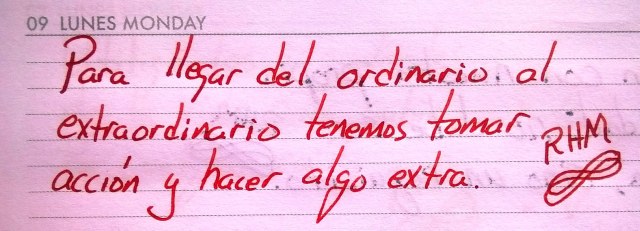 09 LUNES MONDAY
Para llegar del ordinario al
extraordinario tenemos tomar
acción y hacer algo extra.
RHM